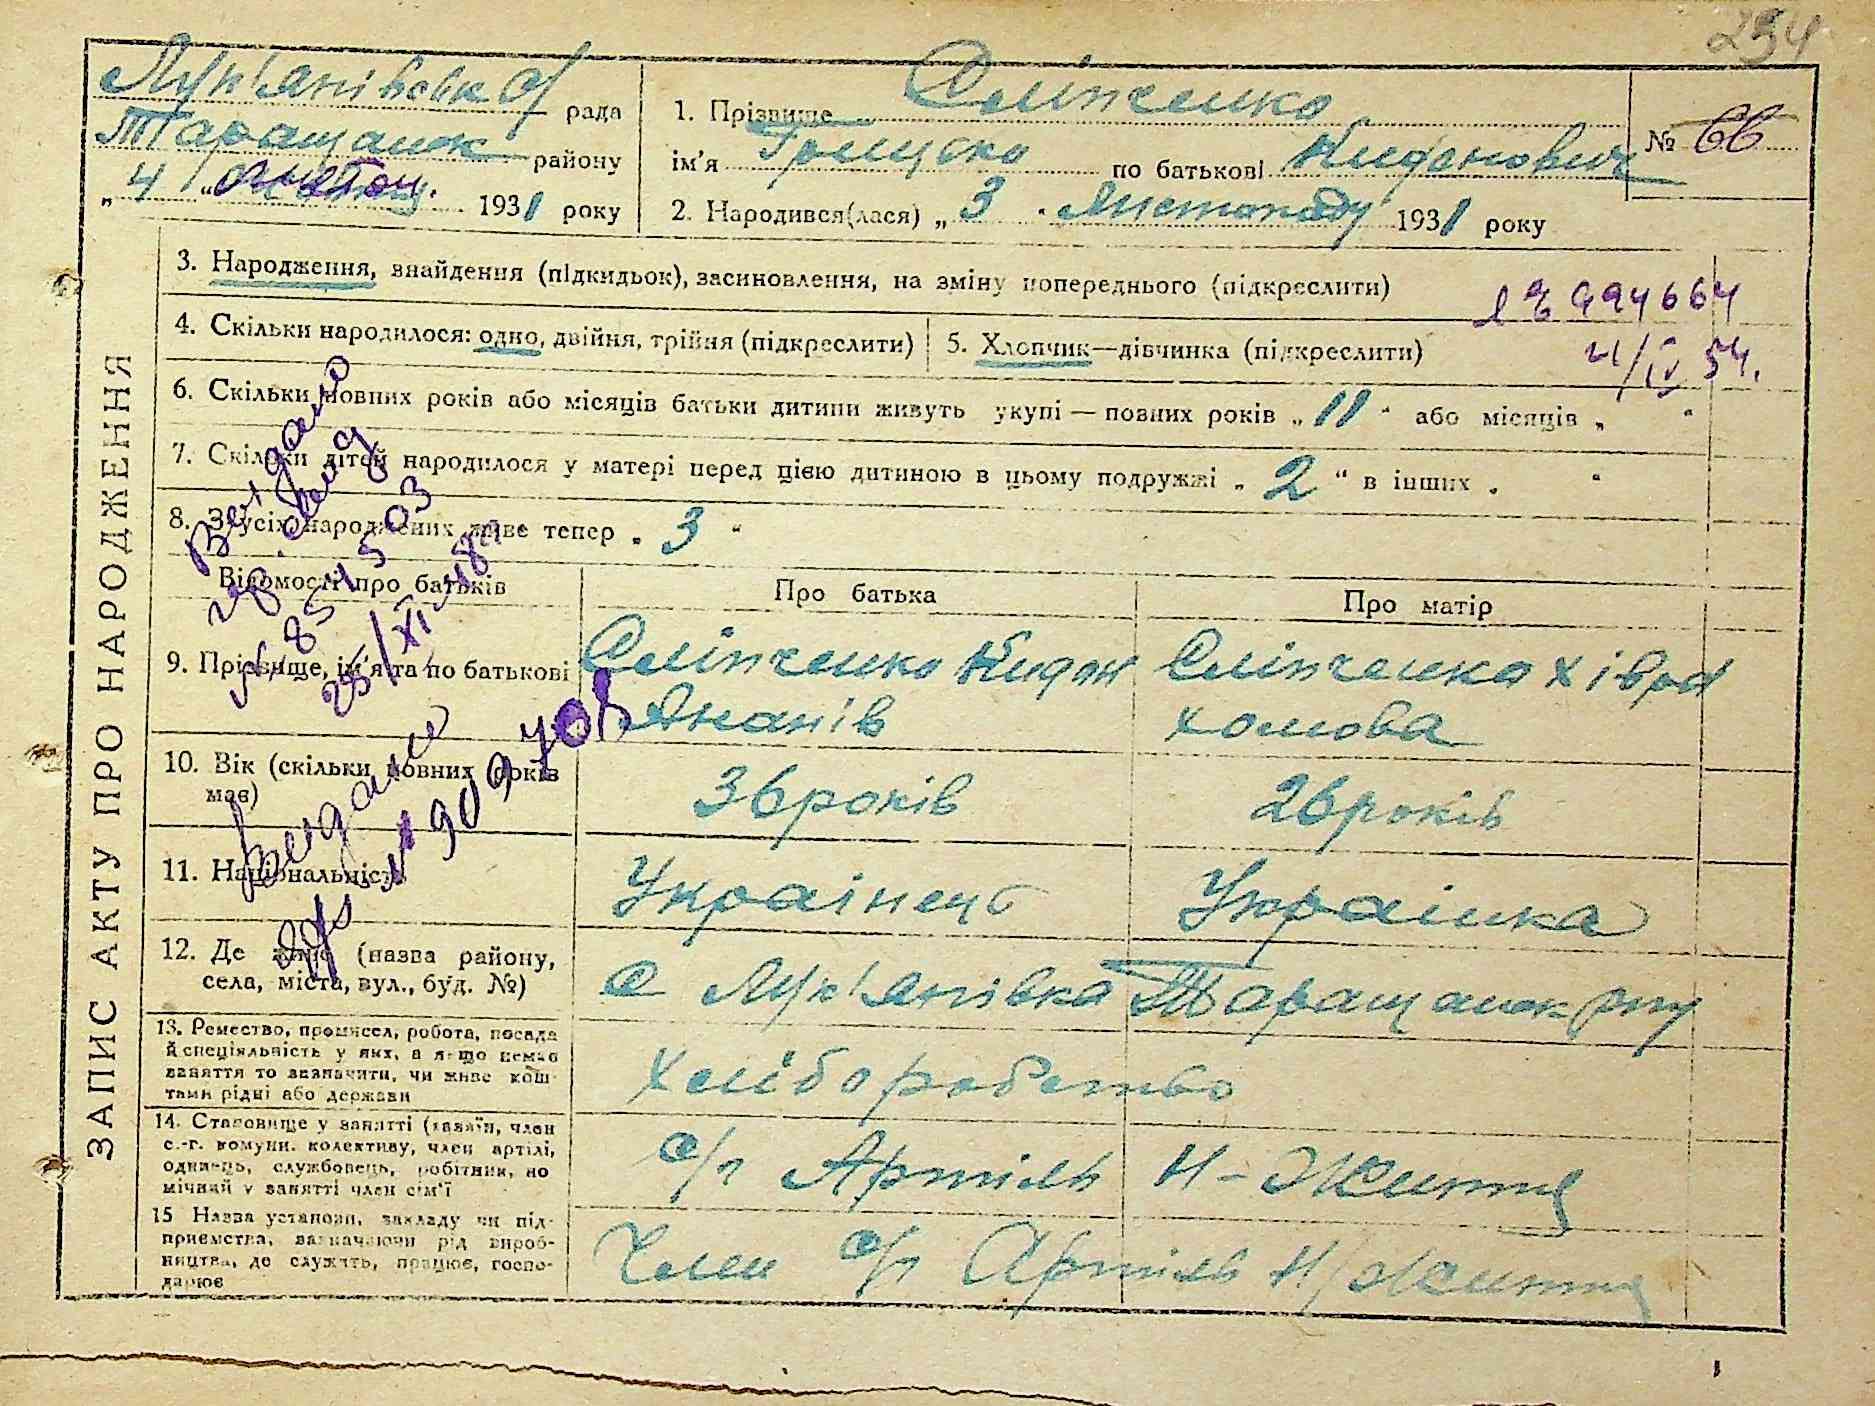 254
Лук'янівськ с/ рада
Таращанськ району
„ 4 " листоп. 1931 року
1. Прізвище Сліпченко
ім'я Грицско по батькові Кифонович
№ 66
2. Народився(лася) „ 3 " Листопаду 1931 року
ЗАПИС АКТУ ПРО НАРОДЖЕННЯ
3. Народження, знайдення (підкидьок), засиновлення, на зміну попереднього (підкреслити)
994664
4. Скільки народилося: одно, двійня, трійня (підкреслити)
5. Хлопчик—дівчинка (підкреслити)
21/IV 54.
6. Скільки повних років або місяців батьки дитини живуть укупі — повних років „ 11 " або місяців „ "
7. Скільки дітей народилося у матері перед цією дитиною в цьому подружжі „ 2 " в інших „ "
8. З усіх народжених живе тепер „ 3 "
Видано
№ 854503
25/XI-48
Видано
№ 909708
Відомості про батьків
Про батька
Про матір
9. Прізвище, ім'я та по батькові
Сліпченко Кифон
Ананів
Сліпченко Хівря
Хомова
10. Вік (скільки повних років
має)
36 років
26 років
11. Національність
Українець
Українка
12. Де живе (назва району,
села, міста, вул., буд. №)
с Лук'янівка Таращанськ р-ну
13. Ремество, промисел, робота, посада
й спеціяльність у яких, а якщо немає
заняття то зазначити, чи живе кош-
тами рідні або держави
Хліборобство
14. Становище у занятті (хазяїн, член
с.-г. комуни, колективу, член артілі,
одинець, службовець, робітник, по
мічний у занятті член сім'ї
с/г Артіль Н-Життя
15 Назва установи, закладу чи під-
приємства, зазначаючи рід вироб-
ництва, де служить, працює, госпо-
дарює
Член с/г Артіль Н/життя